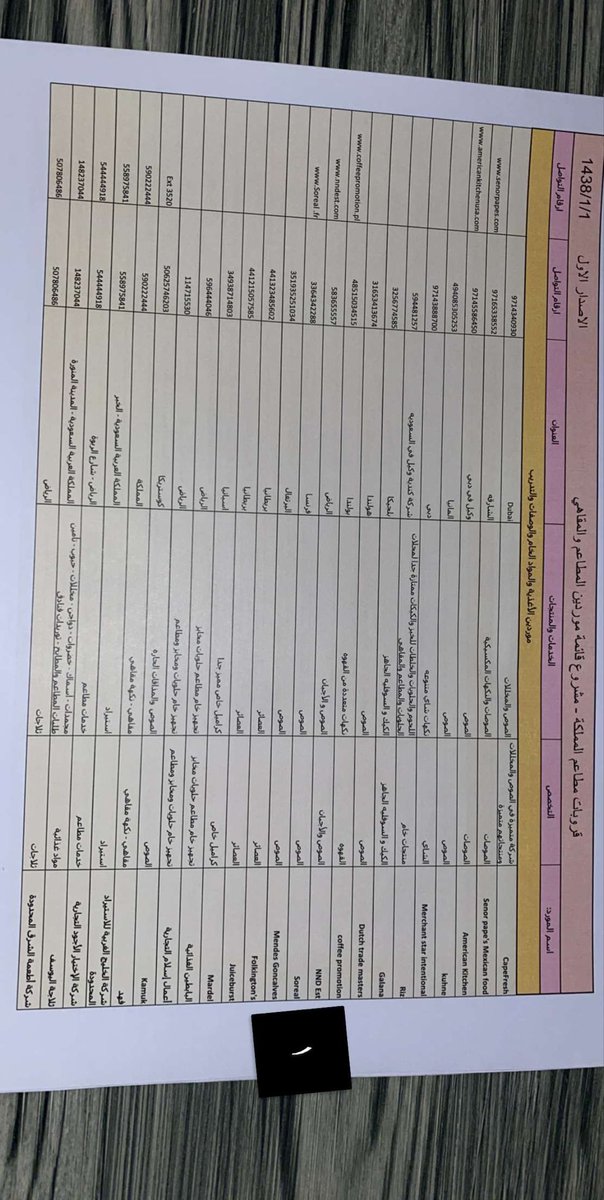 قروبات مطاعم المملكة - مشروع قائمة موردين المطاعم والمقاهي الاصدار الاول 1438/1/1
موردين الأغذية والمواد الخام والوصفات والتدريب
اسم المورد: التخصص الخدمات والمنتجات العنوان ارقام التواصل ارقام التواصل
CapeFresh شركة متميزة في الصوص والمخللات ومنتجاتهم متميزة الصوص والمخللات Dubai 9714340930
Senor pape's Mexican food الصوصات الصوصات والنكهات المكسيكية الشارقه 97165338552 www.senorpapes.com
American Kitchen الصوصات الصوص وكيل في دبي 97145586450 www.americankitchenusa.com
kuhne الصوص الصوص المانيا 494085305253
Merchant star intentional الشاي نكهات شاي متنوعه دبي 97143888700
Riz منتجات خام اللحوم والحلويات والخلطات للخبز والكيكات ممتازة جدا لمحلات الحلويات والمطاعم والمقاهي شركة كندية وكيل في السعوديه 594481257
Galana الكيك و السوفليه الجاهز الكيك و السوفليه الجاهز بلجيكا 3256774585
Dutch trade masters الصوص الصوص هولندا 31653413674
coffee promotion القهوه نكهات متعددة من القهوه بولندا 48515034515 www.coffeepromotion.pl
NND Est الصوص والأجبان الصوص و الأجبان الرياض 583655557 www.nndest.com
Soreal الصوص الصوص فرنسا 3364342288 www.Soreal .fr
Mendes Goncalves الصوص الصوص البرتغال 351935251034
Folkington's العصائر العصائر بريطانيا 441323485602
Juiceburst العصائر العصائر بريطانيا 441215057585
Mardel كراميل خاص كراميل خاص مميز جدا اسبانيا 34938714803
البابطين الغذائية تجهيز خام مطاعم حلويات مخابز تجهيز خام مطاعم حلويات مخابز الرياض 596444046
أعمال إسلام التجارية تجهيز خام حلويات ومخابز ومطاعم تجهيز خام حلويات ومخابز ومطاعم الرياض 114715530
Kamuk الصوص الصوص والمذاقات الحاره كوستريكا 50625746203 Ext 3520
فهد مقاهي - نكهة مقاهي مقاهي - نكهة مقاهي المملكة 590222444 590222444
شركة الخليج العربية للاستيراد المحدودة استيراد استيراد المملكة العربية السعودية - الخبر 558975841 558975841
شركة الاختيار الأجود التجارية خدمات مطاعم خدمات مطاعم الرياض - شارع الربوة 544444918 544444918
ثلاجة اليوسف مواد غذائية مجمدات - اسماك - خضروات - دواجن - مخللات - حبوب - تامين طلبات المطاعم والمطابخ - توريدات فنادق المملكة العربية السعودية - المدينة المنورة 148237044 148237044
شركة أطعمة الشرق المحدودة ثلاجات ثلاجات الرياض 507806486 507806486
١